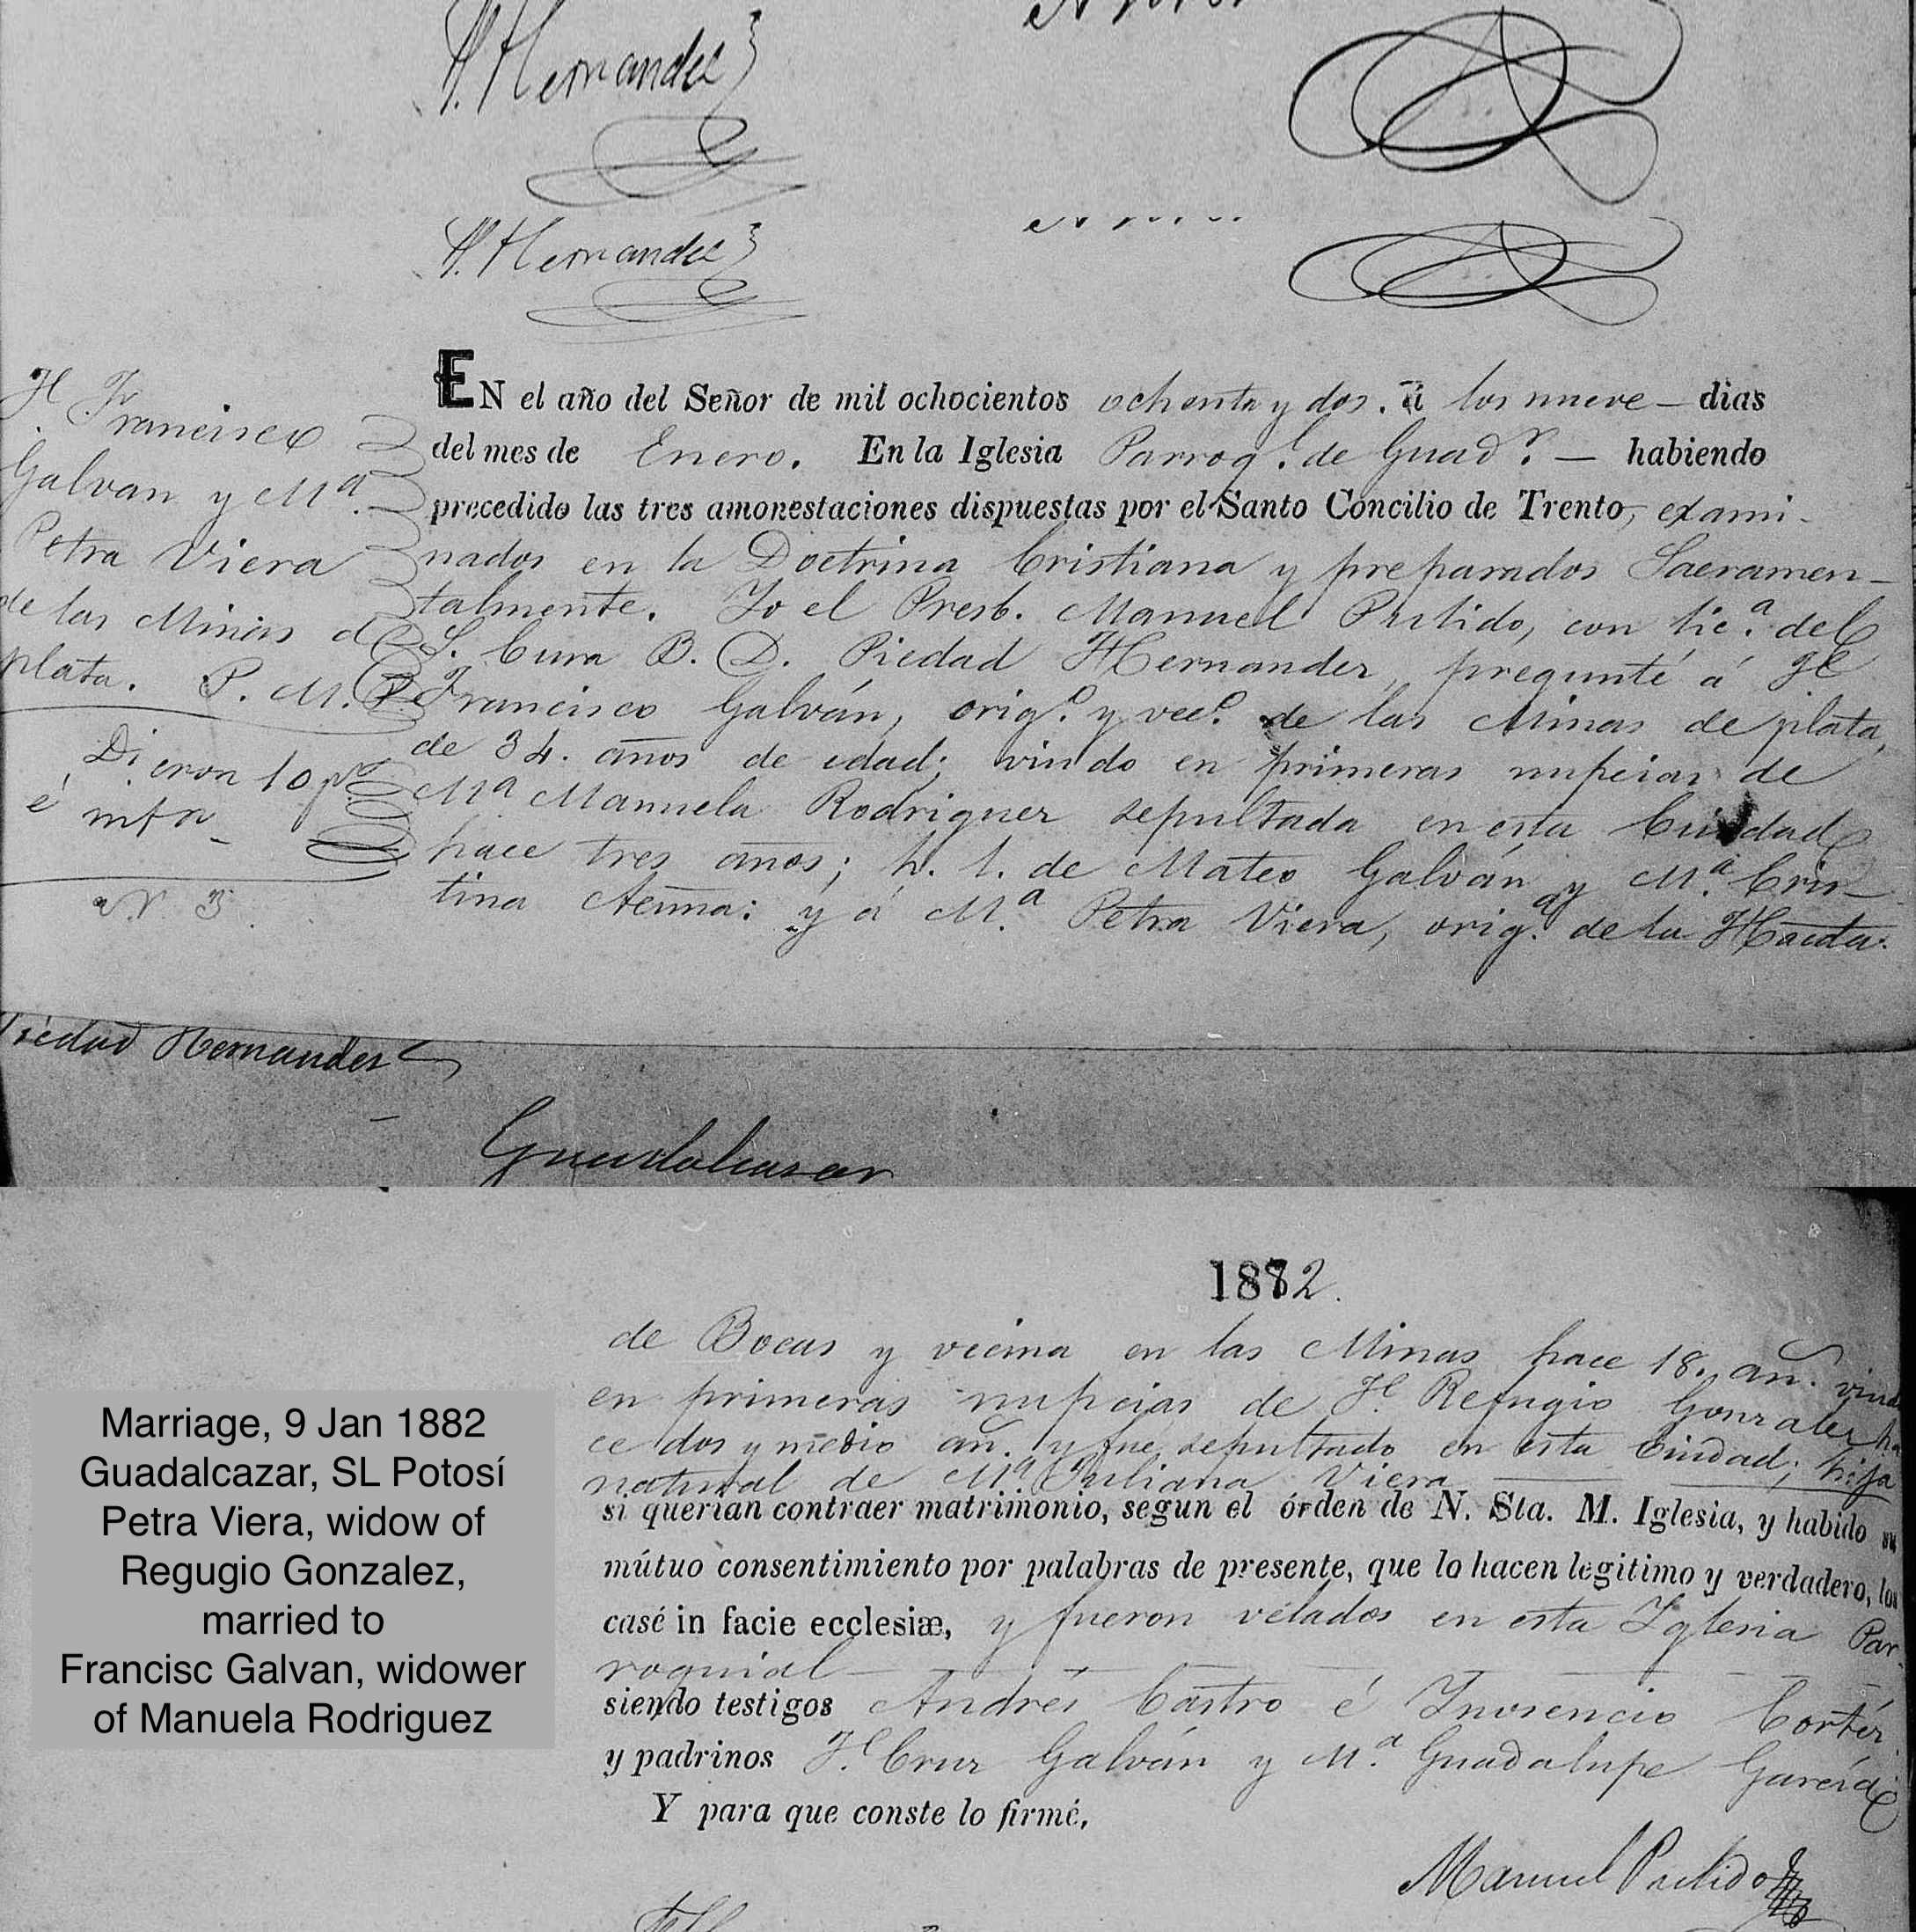 P. Hernandez
P. Hernandez
J.ᵉ Francisco
Galvan y M.ª
Petra Viera
de las Minas de
plata. P. M. P.
Dieron 10 p.ˢ
é infn
N. 3
EN el año del Señor de mil ochocientos ochenta y dos. á los nueve — dias
del mes de Enero. En la Iglesia Parroq.ˡ de Guad.ʳ — habiendo
precedido las tres amonestaciones dispuestas por el Santo Concilio de Trento, exami-
nados en la Doctrina Cristiana y preparados Sacramen-
talmente. Yo el Presb. Manuel Pulido, con lic.ª del
S. Cura B. D. Piedad Hernandez, pregunté á J.ᵉ
Francisco Galván, orig.º y vec.º de las Minas de plata,
de 34. años de edad; viudo en primeras nupcias de
M.ª Manuela Rodriguez sepultada en esta Ciudad
hace tres años; h. l. de Mateo Galván y M.ª Cris-
tina Acuña: y á M.ª Petra Viera, orig.ª de la Hacda.
Piedad Hernandez
Guadalcazar
1882.
de Bocas y vecina en las Minas hace 18. añ. viuda
en primeras nupcias de J.ᵉ Refugio Gonzalez ha
ce dos y medio añ. y fué sepultado en esta Ciudad; hija
natural de M.ª Juliana Viera
si querian contraer matrimonio, segun el órden de N. Sta. M. Iglesia, y habido su
mútuo consentimiento por palabras de presente, que lo hacen legitimo y verdadero, los
casé in facie ecclesiæ, y fueron velados en esta Iglesia Par-
roquial
siendo testigos Andrés Castro é Inosencio Cortéz
y padrinos J.ᵉ Cruz Galván y M.ª Guadalupe García
Y para que conste lo firmé,
Manuel Pulido
Marriage, 9 Jan 1882
Guadalcazar, SL Potosí
Petra Viera, widow of
Regugio Gonzalez,
married to
Francisc Galvan, widower
of Manuela Rodriguez